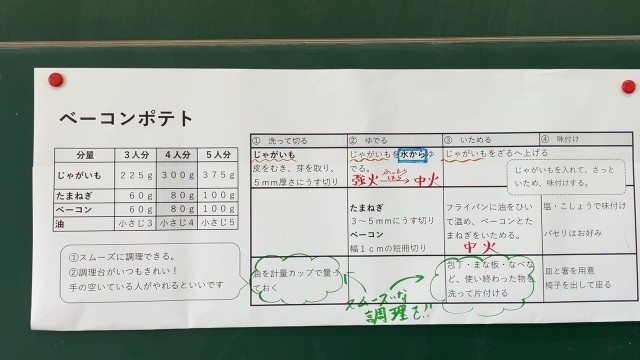 ベーコンポテト
分量 3人分 4人分 5人分
じゃがいも 225g 300g 375g
たまねぎ 60g 80g 100g
ベーコン 60g 80g 100g
油 小さじ3 小さじ4 小さじ5
①スムーズに調理できる。
②調理台がいつもきれい！
手の空いている人がやれるといいです
① 洗って切る
じゃがいも
皮をむき、芽を取り、
5mm厚さにうす切り
油を計量カップで量っ
ておく
② ゆでる
じゃがいもを水からゆ
でる。
強火 ふっとう したら 中火
たまねぎ
3～5mmにうす切り
ベーコン
幅1cmの短冊切り
スムーズな
調理を!!
③ いためる
じゃがいもをざるへ上げる
フライパンに油をひい
て温め、ベーコンとた
まねぎをいためる。
中火
包丁・まな板・なべな
ど、使い終わった物を
洗って片付ける
④ 味付け
じゃがいもを入れて、さっと
いため、味付けする。
塩・こしょうで味付け
パセリはお好み
皿と箸を用意
椅子を出して座る